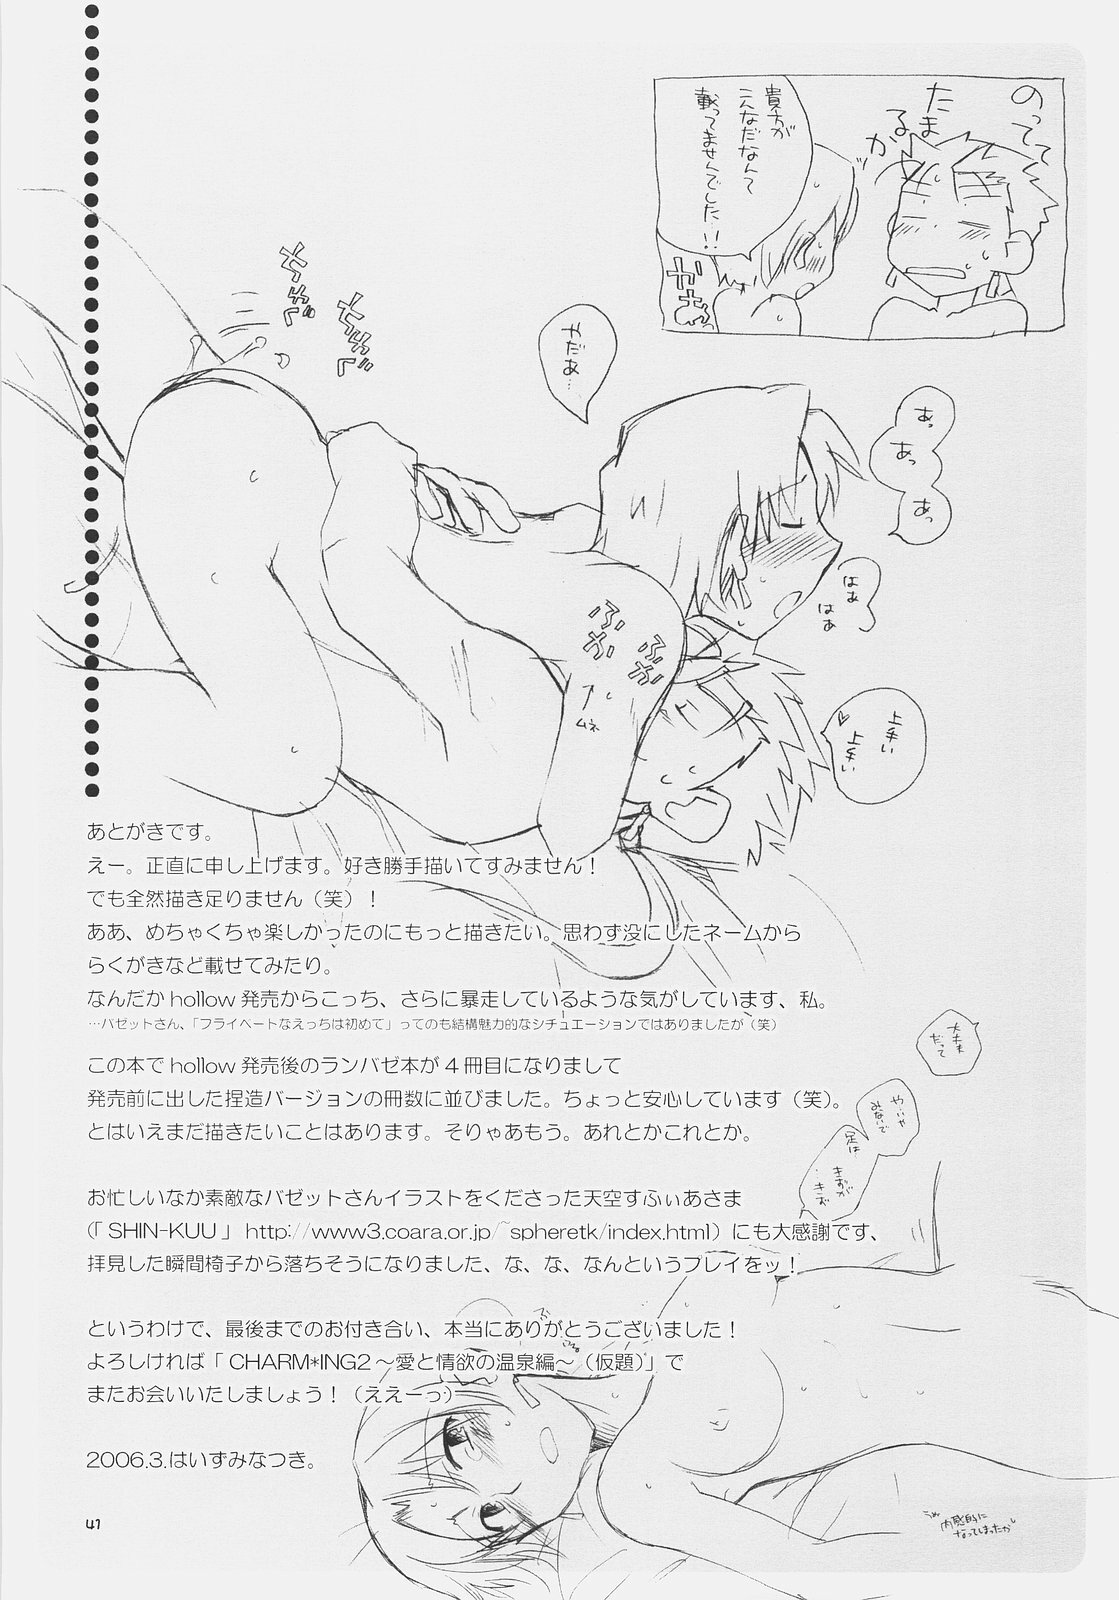 のってて
たまるか
貴方が
こんなだなんて
載ってませんでした!!
めちゃ
めちゃ
やだぁ…
あっ
あっ
あっ
はぁ
はぁ
ふか
ふか
ふか
ふか
ムネ
上手い
上手い
あとがきです。
えー。正直に申し上げます。好き勝手描いてすみません！
でも全然描き足りません（笑）！
ああ、めちゃくちゃ楽しかったのにもっと描きたい。思わず没にしたネームから
らくがきなど載せてみたり。
なんだか hollow 発売からこっち、さらに暴走しているような気がしています、私。
…バゼットさん、「プライベートなえっちは初めて」ってのも結構魅力的なシチュエーションではありましたが（笑）
この本で hollow 発売後のランバゼ本が 4 冊目になりまして
発売前に出した捏造バージョンの冊数に並びました。ちょっと安心しています（笑）。
とはいえまだ描きたいことはあります。そりゃあもう。あれとかこれとか。
大丈夫
だって
やいや
みないで
足は
きずが
お忙しいなか素敵なバゼットさんイラストをくださった天空すふぃあさま
(「 SHIN-KUU 」 http://www3.coara.or.jp/~spheretk/index.html）にも大感謝です、
拝見した瞬間椅子から落ちそうになりました、な、な、なんというプレイをッ！
というわけで、最後までのお付き合い、本当にありがとうございました！
よろしければ「 CHARM*ING2 〜愛と情欲の温泉編〜（仮題）」で
またお会いいたしましょう！（ええーっ）
2006.3.はいずみなつき。
内感的に
なってしまったが
41